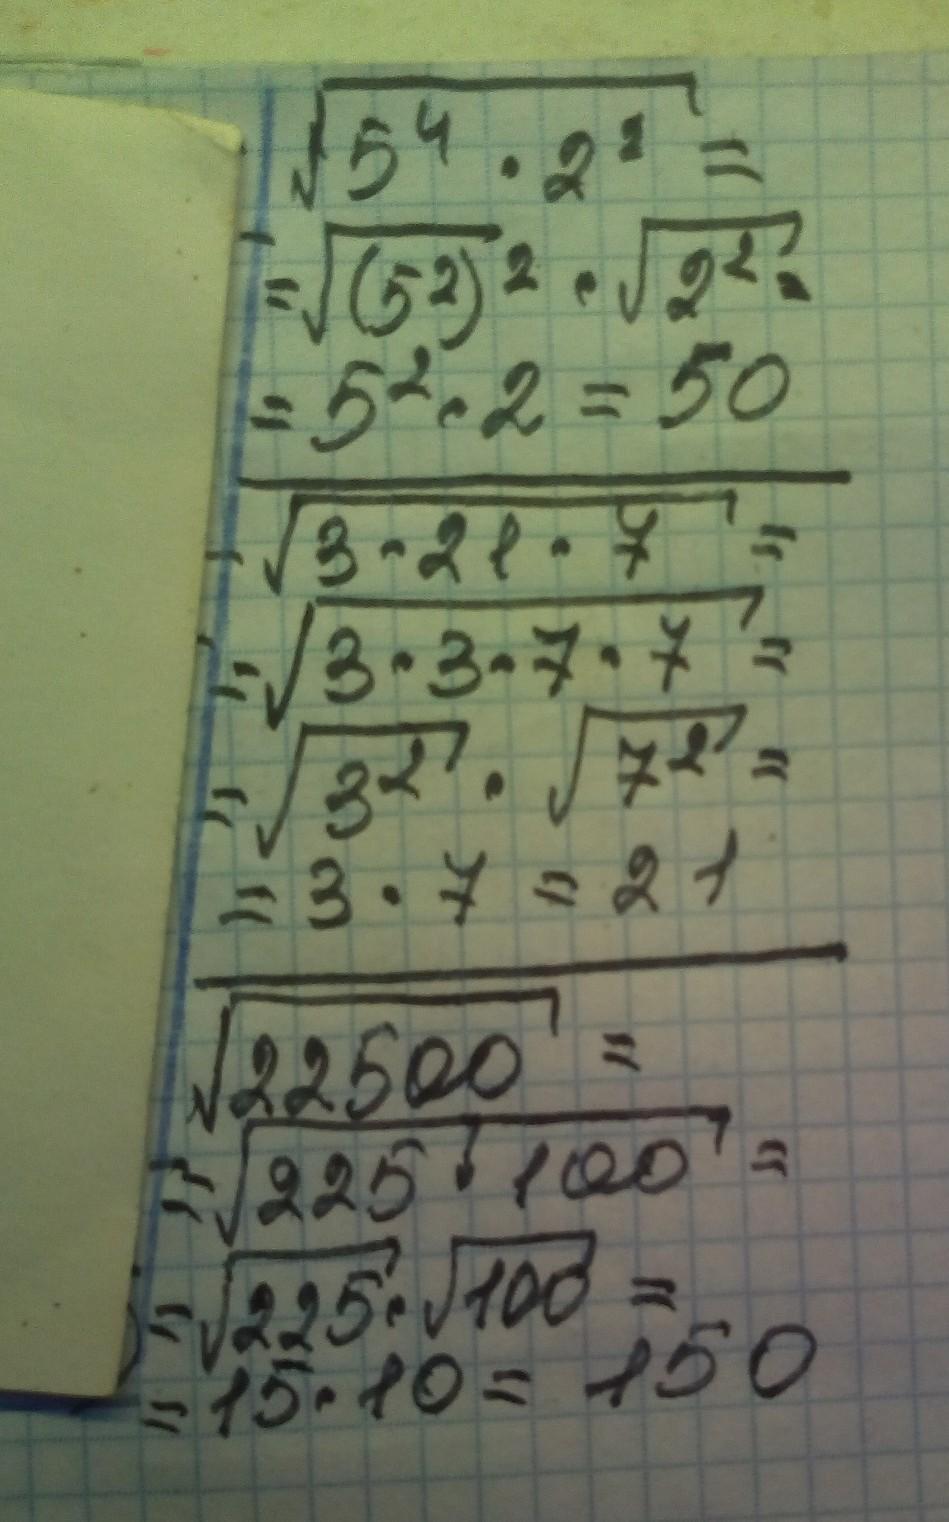 √5⁴ · 2² =
= √(5²)² · √2² =
= 5² · 2 = 50
= √3 · 21 · 7 =
= √3 · 3 · 7 · 7 =
= √3² · √7² =
= 3 · 7 = 21
√22500 =
= √225 · 100 =
= √225 · √100 =
= 15 · 10 = 150